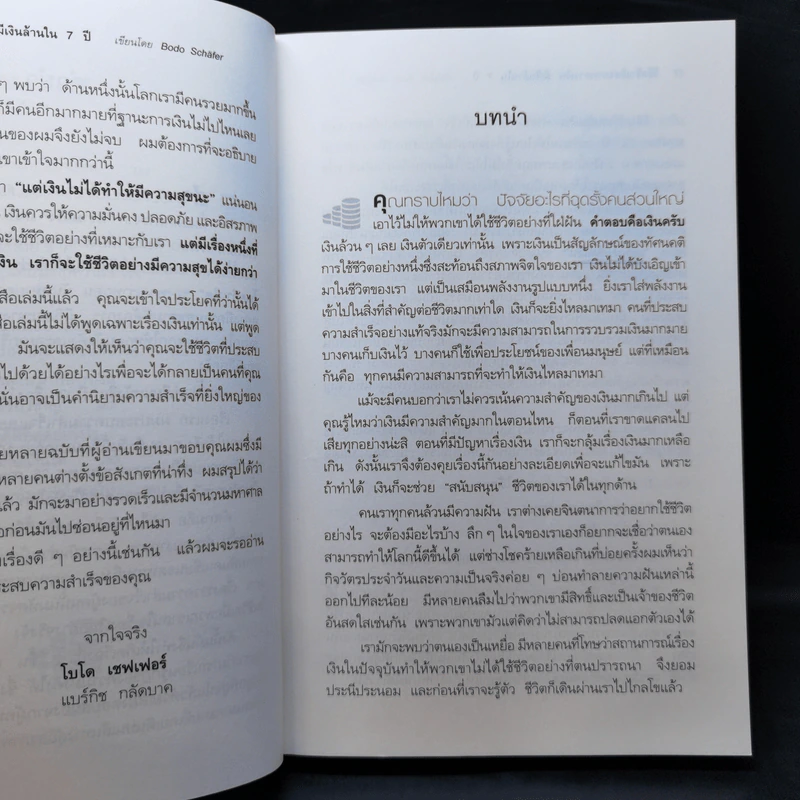 มีเงินล้านใน 7 ปี เขียนโดย Bodo Schäfer
ๆ พบว่า ด้านหนึ่งนั้นโลกเรามีคนรวยมากขึ้น
ก็มีคนอีกมากมายที่ฐานะการเงินไม่ไปไหนเลย
นของผมจึงยังไม่จบ ผมต้องการที่จะอธิบาย
เขาเข้าใจมากกว่านี้
า “แต่เงินไม่ได้ทำให้มีความสุขนะ” แน่นอน
เงินควรให้ความมั่นคง ปลอดภัย และอิสรภาพ
จะใช้ชีวิตอย่างที่เหมาะกับเรา แต่มีเรื่องหนึ่งที่
งิน เราก็จะใช้ชีวิตอย่างมีความสุขได้ง่ายกว่า
สือเล่มนี้แล้ว คุณจะเข้าใจประโยคที่ว่านั้นได้
สือเล่มนี้ไม่ได้พูดเฉพาะเรื่องเงินเท่านั้น แต่พูด
มันจะแสดงให้เห็นว่าคุณจะใช้ชีวิตที่ประสบ
ไปด้วยได้อย่างไรเพื่อจะได้กลายเป็นคนที่คุณ
นั่นอาจเป็นคำนิยามความสำเร็จที่ยิ่งใหญ่ของ
ยหลายฉบับที่ผู้อ่านเขียนมาขอบคุณผมซึ่งมี
หลายคนต่างตั้งข้อสังเกตที่น่าทึ่ง ผมสรุปได้ว่า
แล้ว มักจะมาอย่างรวดเร็วและมีจำนวนมหาศาล
อก่อนมันไปซ่อนอยู่ที่ไหนมา
บเรื่องดี ๆ อย่างนี้เช่นกัน แล้วผมจะรออ่าน
ระสบความสำเร็จของคุณ
จากใจจริง
โบโด เชฟเฟอร์
แบร์กิช กลัดบาค
บทนำ
คุณทราบไหมว่า ปัจจัยอะไรที่ฉุดรั้งคนส่วนใหญ่
เอาไว้ไม่ให้พวกเขาได้ใช้ชีวิตอย่างที่ใฝ่ฝัน คำตอบคือเงินครับ
เงินล้วน ๆ เลย เงินตัวเดียวเท่านั้น เพราะเงินเป็นสัญลักษณ์ของทัศนคติ
การใช้ชีวิตอย่างหนึ่งซึ่งสะท้อนถึงสภาพจิตใจของเรา เงินไม่ได้บังเอิญเข้า
มาในชีวิตของเรา แต่เป็นเสมือนพลังงานรูปแบบหนึ่ง ยิ่งเราใส่พลังงาน
เข้าไปในสิ่งที่สำคัญต่อชีวิตมากเท่าใด เงินก็จะยิ่งไหลมาเทมา คนที่ประสบ
ความสำเร็จอย่างแท้จริงมักจะมีความสามารถในการรวบรวมเงินมากมาย
บางคนเก็บเงินไว้ บางคนก็ใช้เพื่อประโยชน์ของเพื่อนมนุษย์ แต่ที่เหมือน
กันคือ ทุกคนมีความสามารถที่จะทำให้เงินไหลมาเทมา
แม้จะมีคนบอกว่าเราไม่ควรเน้นความสำคัญของเงินมากเกินไป แต่
คุณรู้ไหมว่าเงินมีความสำคัญมากในตอนไหน ก็ตอนที่เราขาดแคลนไป
เสียทุกอย่างน่ะสิ ตอนที่มีปัญหาเรื่องเงิน เราก็จะกลุ้มเรื่องเงินมากเหลือ
เกิน ดังนั้นเราจึงต้องคุยเรื่องนี้กันอย่างละเอียดเพื่อจะแก้ไขมัน เพราะ
ถ้าทำได้ เงินก็จะช่วย “สนับสนุน” ชีวิตของเราได้ในทุกด้าน
คนเราทุกคนล้วนมีความฝัน เราต่างเคยจินตนาการว่าอยากใช้ชีวิต
อย่างไร จะต้องมีอะไรบ้าง ลึก ๆ ในใจของเราเองก็อยากจะเชื่อว่าตนเอง
สามารถทำให้โลกนี้ดีขึ้นได้ แต่ช่างโชคร้ายเหลือเกินที่บ่อยครั้งผมเห็นว่า
กิจวัตรประจำวันและความเป็นจริงค่อย ๆ บ่อนทำลายความฝันเหล่านี้
ออกไปทีละน้อย มีหลายคนลืมไปว่าพวกเขามีสิทธิ์และเป็นเจ้าของชีวิต
อันสดใสเช่นกัน เพราะพวกเขามัวแต่คิดว่าไม่สามารถปลดแอกตัวเองได้
เรามักจะพบว่าตนเองเป็นเหยื่อ มีหลายคนที่โทษว่าสถานการณ์เรื่อง
เงินในปัจจุบันทำให้พวกเขาไม่ได้ใช้ชีวิตอย่างที่ตนปรารถนา จึงยอม
ประนีประนอม และก่อนที่เราจะรู้ตัว ชีวิตก็เดินผ่านเราไปไกลโขแล้ว